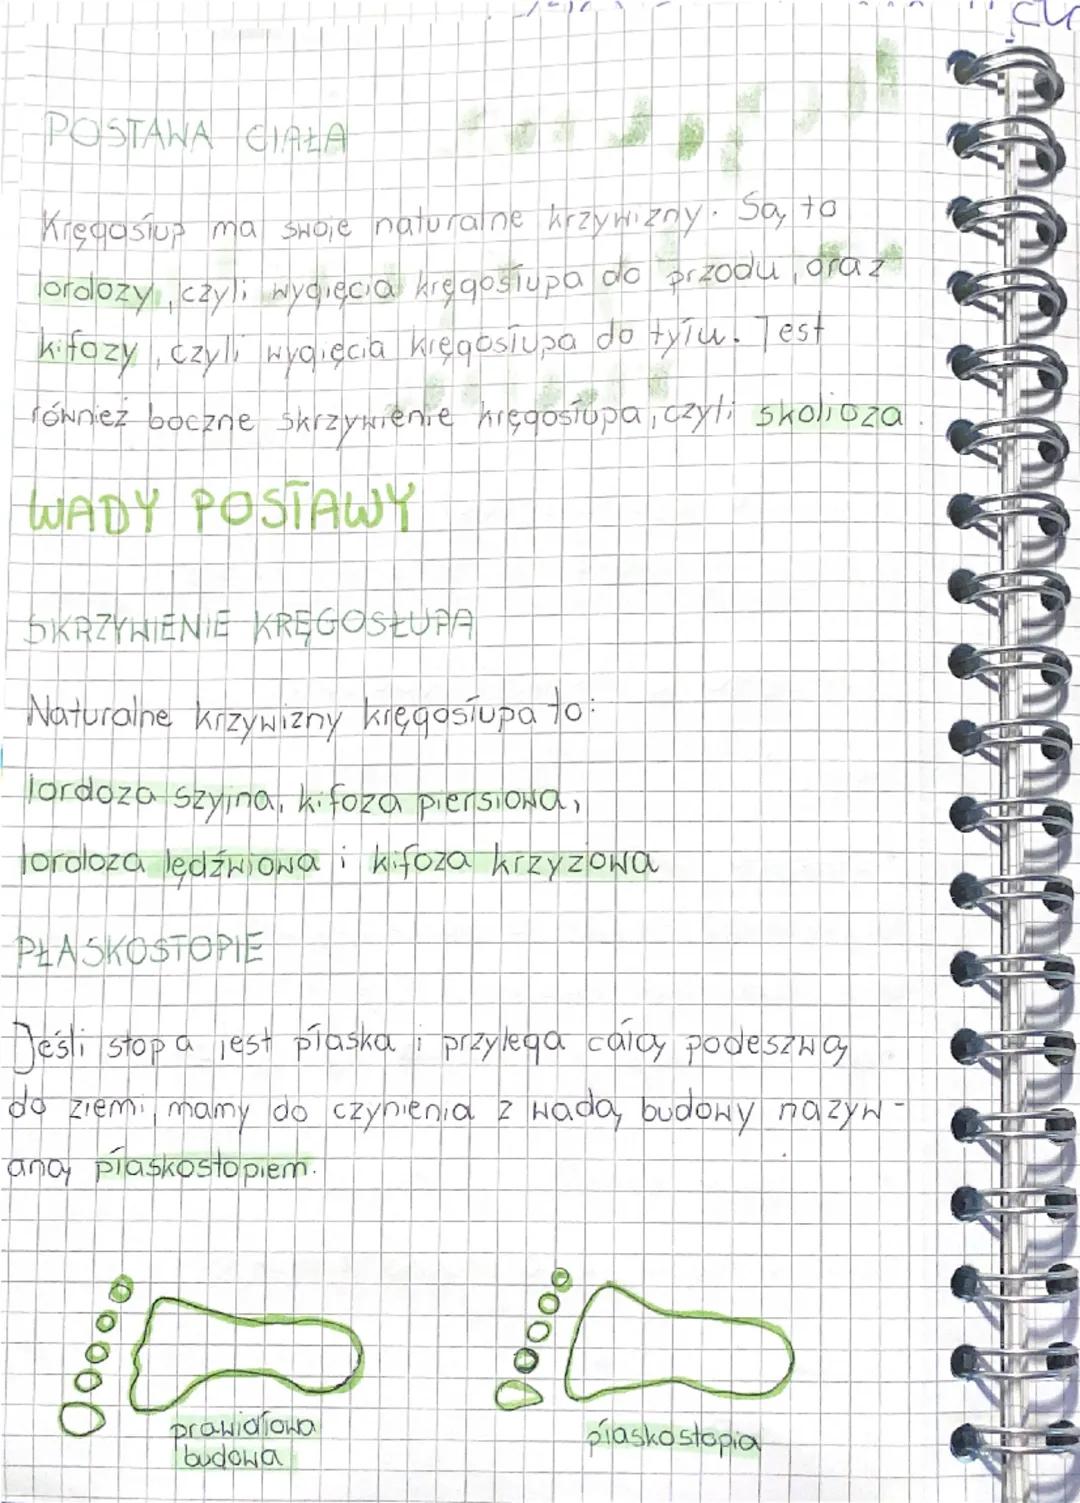 POSTAWA CIAŁA
Kręgosłup ma swoje naturalne krzywizny. Są to
lordozy, czyli wygięcia kręgosłupa do przodu, oraz
kifozy, czyli wygięcia kręgosłupa do tyłu. Jest
również boczne skrzywienie kręgosłupa, czyli skolioza.
WADY POSTAWY
SKRZYWIENIE KRĘGOSŁUPA
Naturalne krzywizny kręgosłupa to:
lordoza szyjna, kifoza piersiowa,
lordoza lędźwiowa i kifoza krzyżowa
PŁASKOSTOPIE
Jeśli stopa jest płaska i przylega całą podeszwą
do ziemi, mamy do czynienia z wadą budowy nazyw-
aną płaskostopiem.
prawidłowa
budowa
płaskostopia